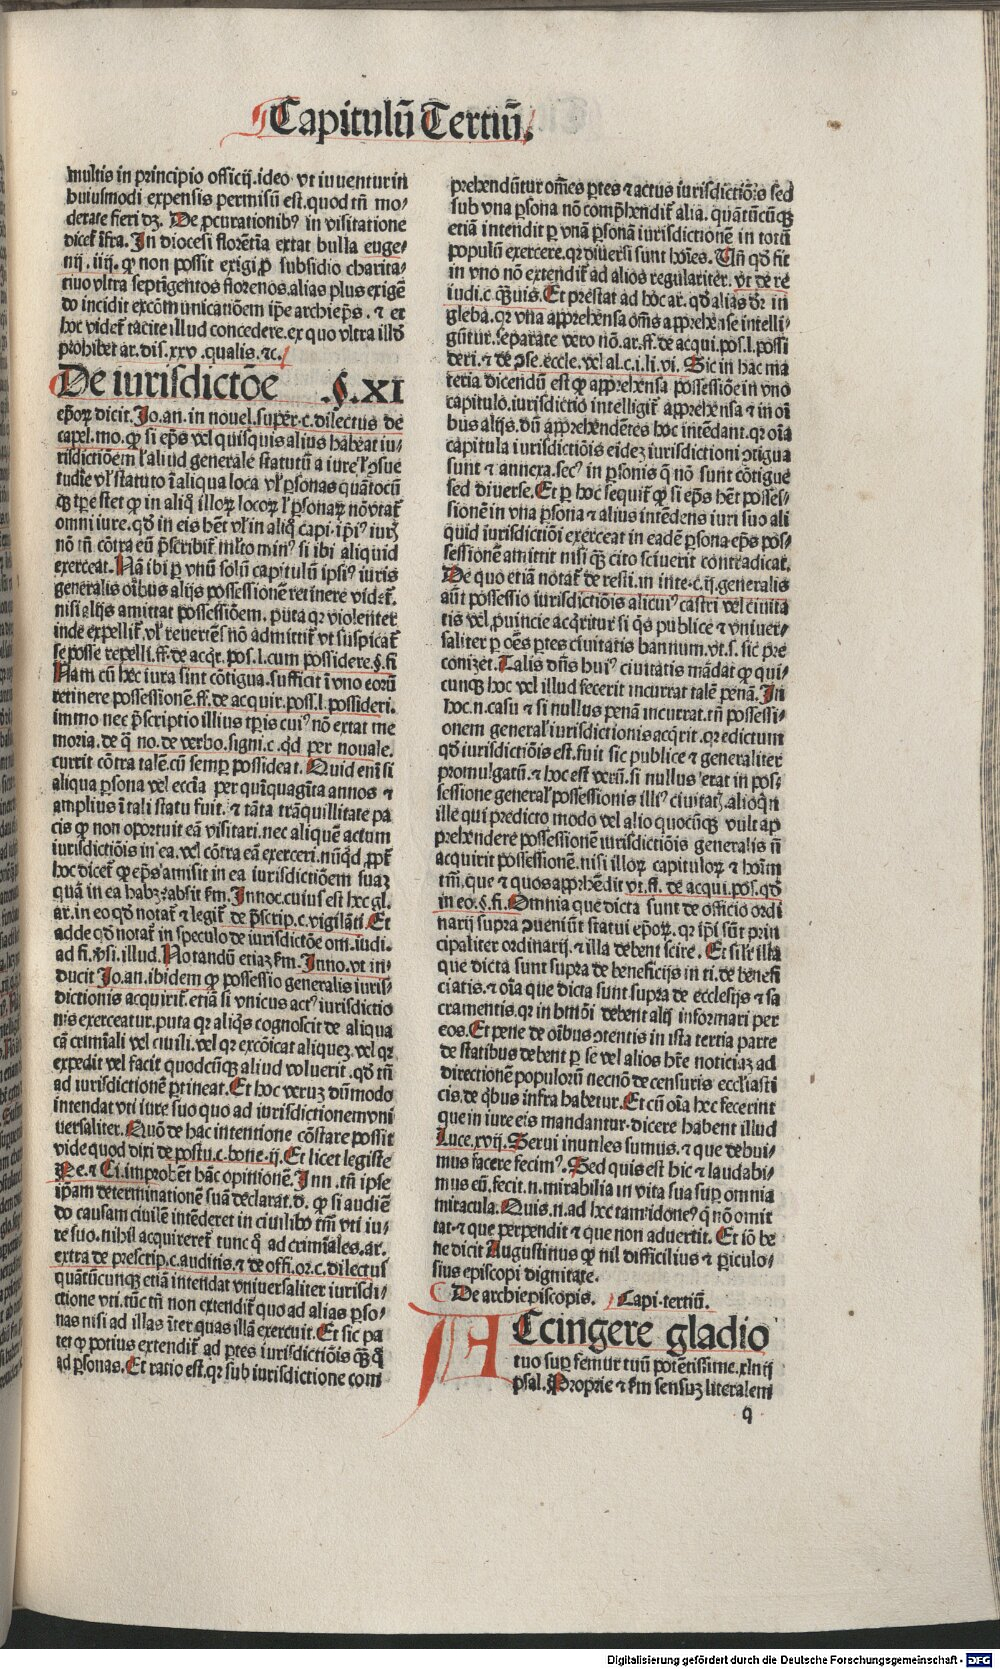 Capitulū Tertiū.
multis in principio officij.ideo vt iuuentur in
huiusmodi expensis permisuꝫ est.quod tñ mo⸗
derate fieri dꝫ. De ꝓcurationibꝰ in visitatione
dicet̃ ifra. In diocesi florētia extat bulla euge⸗
nij.iiij. ꝙ non possit exigi ꝓ subsidio charita⸗
tiuo vltra septīgentos florenos.alias plus exigē
do incidit excōmunicatiōem ip̄e archiep̄s. ⁊ ex
hoc videt̃ tacite illud concedere.ex quo vltra illđ
prohibet ar.dis.xxv.qualis.⁊c.
De iurisdictōe .§.XI
ep̄oꝝ dicit.Jo.an.in nouel.super.c.dilectus de
capel.mo.ꝙ si ep̄s vel quisquis alius habeat iu⸗
risdictiōem l̓ aliud generale statutū a iure l̓ ↄsue
tudīe vl̓ statuto ī aliqua loca vl̓ ꝑsonas quātocū
qꝫ tꝑe stet ꝙ in aliq̄ illoꝝ locoꝝ l̓ ꝑsonaꝝ nō vtat̃
omni iure.qđ in eis hēt vl̓ in aliq̄ capi.ip̄iꝰ iurꝭ
nō tñ cōtra eū p̄scribit̃.ml̓to minꝰ si ibi aliquid
exerceat.Nā ibi ꝑ vnū solū capitulū ipsiꝰ iuris
generalis oībus alijs possessionē retinere videt̃.
nisi alijs amittat possessiōem. puta qꝛ violenter
inde expellit̃.vl̓ reuertēs nō admittit̃ vt suspicat̃
se posse repelli.ff.de acqr̄.pos.l.cum possidere.§.fi
Nam cū hec iura sint cōtigua.sufficit ī vno eoꝝ
retinere possessionē.ff.de acquir.poss.l.possideri.
immo nec p̄scriptio illius tꝑis cuiꝰ nō extat me
moria.de q̄ no.de verbo.signi.c.qđ per nouale.
currit cōtra talē.cū semꝑ possideat. Quid eni si
aliqua ꝑsona vel eccīa per quīquagīta annos ⁊
amplius ī tali statu fuit. ⁊ tāta trāquillitate pa
cis ꝙ non oportuit eā visitari.nec aliquē actum
iurisdictiōis in ea.vel cōtra eā exerceri.nūqđ ꝓpt̃
hoc dicet̃ ꝙ ep̄s amisit in ea iurisdictiōem suaꝫ
quā in ea habꝫ:absit ẜm.Jnnoc.cuius est hec gl.
ar.in eo qđ notat̃ ⁊ legit̃ de p̄scrip.c.vigilāti.Et
adde qđ notat̃ in speculo de iurisdictōe om.iudi.
ad fi.ꝟsi.illud. Notandū etiaꝫ ẜm.Jnno.vt in⸗
ducit Jo.an.ibidem ꝙ possessio generalis iuris⸗
dictionis acquirit̃.etiā si vnicus actꝰ iurisdictio
nis exerceatur.puta qꝛ aliqs cognoscit de aliqua
cā crimīali vel ciuili.vel qꝛ excōicat aliqueꝫ.vel qꝛ
expedit vel facit quodcūqꝫ aliud voluerit.qđ tñ
ad iurisdictionē ꝑtineat.Et hoc veruꝫ dūmodo
intendat vti iure suo quo ad iurisdictionem vni
uersaliter. Quō de hac intentione cōstare possit
vide quod dixi de postu.c.bone.ij.Et licet legiste
Pe.⁊ Ci.improbēt hāc opinionē.Jnn.tñ ipse
ip̄am determinationē suā declarat.đ. ꝙ si audiē
do causam ciuilē intēderet in ciuilibꝰ tm̄ vti iu⸗
re suo.nihil acquireret̃ tunc q̄ ad crimīales.ar.
extra de prescrip.c.auditis.⁊ de offi.or.c.dilectus
quātūcunqꝫ etiā intendat vniuersaliter iurisdi⸗
ctione vti.tūc tñ non extendit̃ quo ad alias ꝑso⸗
nas nisi ad illas īter quas illā exercuit.Et sic pa
tet ꝙ potius extendit̃ ad ꝑtes iurisdictiōis qꝫ q̄
ad ꝑsonas.Et ratio est.qꝛ sub iurisdictione com
prehendūtur om̄es ꝑtes ⁊ actus iurisdictiōis sed
sub vna ꝑsona nō comp̄hendit̃ alia.quātūcūqꝫ
etiā intendit ꝑ vnā ꝑsonā iurisdictionē in totū
populū exercere.qꝛ diuersi sunt hoīes. Tñ qđ fit
in vno nō extendit̃ ad alios regulariter. vt de re
iudi.c.quis.Et prestat ad hoc ar.qđ alias dr̄ in
gleba.qꝛ vna apprehensa om̄s apprehense intelli⸗
gūtur.separate vero nō.ar.ff.de acqui.pos.l.possi
deri.⁊ de ↄse.eccle.vel al.c.i.li.vi. Sic in hac ma
teria dicendū est ꝙ apprehensa possessiōe in vno
capitulo.iurisdictio intelligit̃ apprehensa ⁊ in oī
bus alijs.dū apprehendētes hoc intēdant.qꝛ oīa
capitula iurisdictiōis eidez iurisdictioni ↄtigua
sunt ⁊ annexa.secꝰ in ꝑsonis q̄ nō sunt cōtigue
sed diuerse.Et ꝑ hoc sequit̃ ꝙ si ep̄s hēt posses⸗
sionē in vna ꝑsona ⁊ alius intēdens iuri suo ali
quid iurisdictiōi exerceat in eadē ꝑsona ep̄s pos⸗
sessionē amittit nisi qꝫ cito sciuerit contradicat.
De quo etiā notat̃ de resti.in inte.c.ij.generalis
aūt possessio iurisdictiōis alicuiꝰ castri vel ciuita
tis vel ꝓuincie acqritur si qs publice ⁊ vniuer⸗
saliter ꝑ oēs ꝑtes ciuitatis bannum.vt.s. sic p̄re
conizet.Talis dn̄s huiꝰ ciuitatis mādat ꝙ qui⸗
cunqꝫ hoc vel illud fecerit incurrat talē penā.In
hoc.n.casu ⁊ si nullus penā incurrat.tñ possessi⸗
onem general̓ iurisdictionis acqrit.qꝛ edictum
qđ iurisdictiōis est.fuit sic publice ⁊ generaliter
promulgatū.⁊ hoc est verū.si nullus erat in pos⸗
sessione general̓ possessionis illiꝰ ciuitatꝭ.alioqn
ille qui predicto modo vel alio quocūqꝫ vult ap
prehendere possessionē iurisdictiōis generalis n̄
acquirit possessionē.nisi illoꝝ capituloꝝ ⁊ hoīm
tm̄.que ⁊ quos apprehēdit vt.ff. de acqui.pos.qđ
in eo.§.fi. Omnia que dicta sunt de officio ordi
narij supra ↄueniūt statui ep̄oꝝ. qꝛ ip̄i sūt prin
cipaliter ordinarij.⁊ illa debent scire. Et sil̓r illa
que dicta sunt supra de beneficijs in ti.de benefi
ciatis.⁊ oīa que dicta sunt supra de ecclesijs ⁊ sa
cramentis.qꝛ in hmōi debent alij informari per
eos.Et pene de oībus ↄtentis in ista tertia parte
de statibus debent ꝑ se vel alios hr̄e noticiaꝫ ad
directionem populorū necnō de censuris ecclīasti
cis.de qbus infra habetur.Et cū oīa hec fecerint
que in iure eis mandantur.dicere habent illud
Luce.xvij. Serui inutiles sumus.⁊ que debui⸗
mus facere fecimꝰ. Sed quis est hic ⁊ laudabi⸗
mus eū.fecit.n.mirabilia in vita sua suꝑ omnia
miracula. Quis.n.ad hec tam idoneꝰ q̄ nō omit
tat.⁊ que perpendit ⁊ que non aduertit. Et iō be
ne dicit Augustinus ꝙ nil difficilius ⁊ ꝑiculo⸗
sius episcopi dignitate.
De archiepiscopis. Capi.tertiū.
ACcingere gladio
tuo suꝑ femur tuū potētissime.xlnij
psal. Proprie ⁊ ẜm sensuꝫ literalem
q
Digitalisierung gefördert durch die Deutsche Forschungsgemeinschaft - DFG